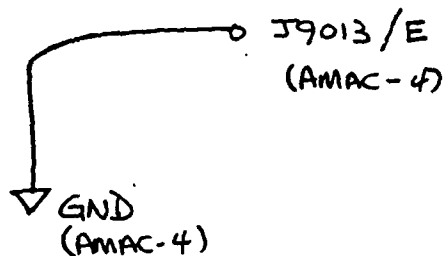 J9013/E
(AMAC-4)
GND
(AMAC-4)